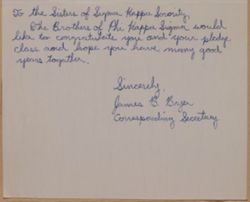 To the Sisters of Sigma Kappa Sorority,
The Brothers of Phi Kappa Sigma would
like to congratulate you and your pledge
class and hope you have many good
years together.
Sincerely,
James G. Bryer
Corresponding Secretary